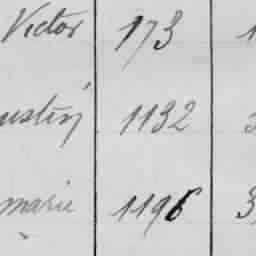 Victor 173 1
ustin 1132
marie 1196 3